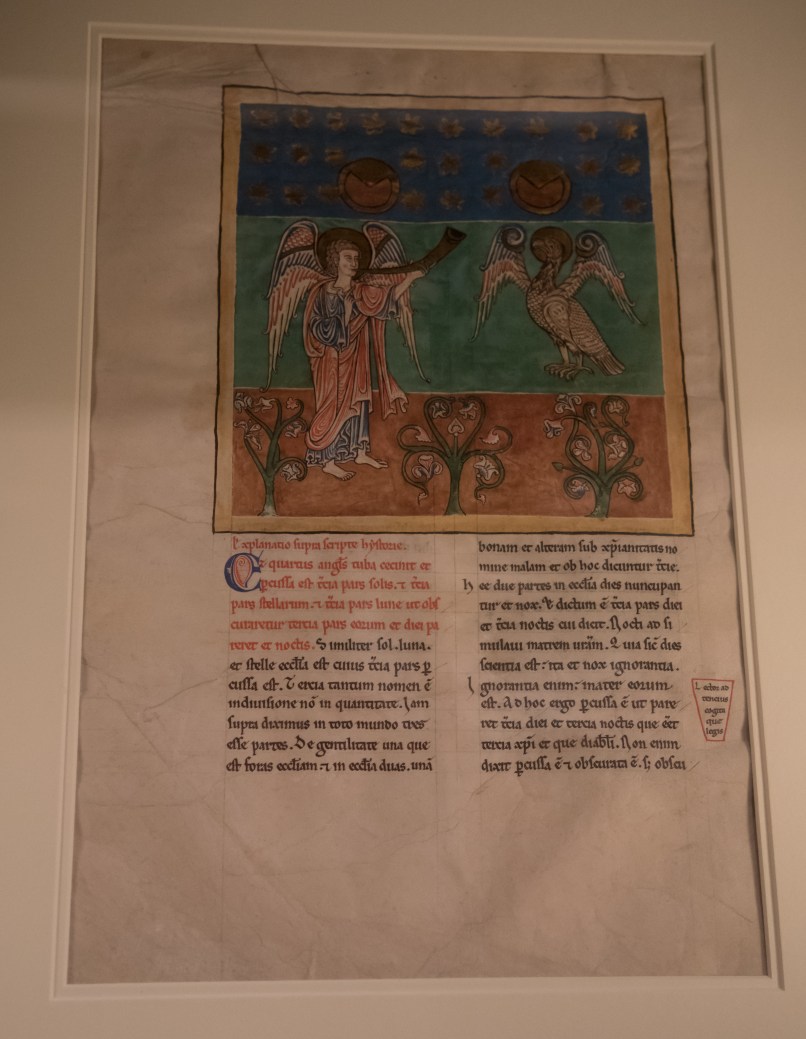 Explanatio supra scripte hystorie.
Et quartus angls̄ tuba cecinit et
p̱cussa est t̄cia pars solis. ⁊ t̄cia
pars stellarum. ⁊ t̄cia pars lune ut obs
curaretur tercia pars eorum et diei pa
reret et noctis. Similiter sol. luna.
et stelle eccl̄ia est cuius t̄cia pars p̱
cussa est. Tercia tantum nomen ē
indiuisione nō in quantitate. Iam
supra diximus in toto mundo tres
esse partes. De gentilitate una que
est foras eccl̄iam. ⁊ in eccl̄ia duas. unā
bonam et alteram sub xp̄ianitatis no
mine malam et ob hoc dicuntur t̄cie.
Hec due partes in eccl̄ia dies nuncupan
tur et nox. Vt dictum ē t̄cia pars diei
et t̄cia noctis cui dicit. Nocti as si
mulaui matrem ur̄am. Quia sic̄ dies
scientia est: ita et nox ignorantia.
Ignorantia enim: mater eorum
est. Ad hoc ergo p̱cussa ē ut pare
ret t̄cia diei et tercia noctis que eēt
tercia xp̄i et que diabl̄i. Non enim
dixit p̱cussa ē ⁊ obscurata ē. s; obscu
Lectes ad
tencius
cogita
que
legis